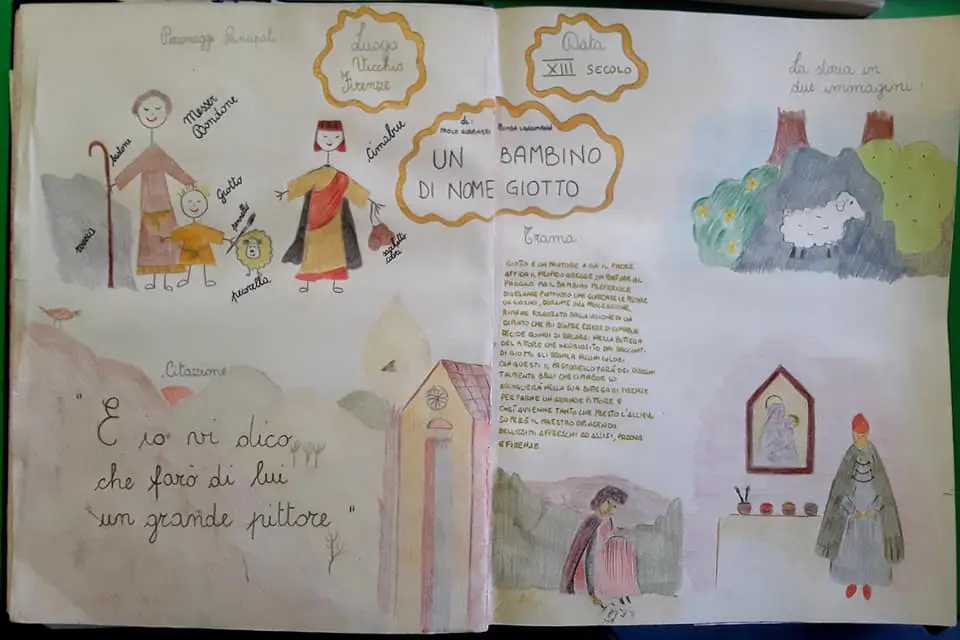 Personaggi Principali
Luogo
Vicchio
Firenze
Data
XIII SECOLO
La storia in
due immagini
Messer
Bondone
bastone
Giotto
pennello
pecorella
roccia
Cimabue
UN BAMBINO
DI NOME GIOTTO
di:
Trama
GIOTTO È UN PASTORE A CUI IL PADRE
AFFIDA IL PROPRIO GREGGE DA PORTARE AL
PASCOLO MA IL BAMBINO PREFERISCE
DISEGNARE PIUTTOSTO CHE GUARDARE LE PECORE
UN GIORNO, DURANTE UNA PROCESSIONE,
RIMANE FOLGORATO DALLA VISIONE DI UN
DIPINTO CHE POI SCOPRE ESSERE DI CIMABUE
DECIDE QUINDI DI RECARSI NELLA BOTTEGA
DEL PITTORE CHE INCURIOSITO DAI RACCONTI
DI GIOTTO GLI REGALA ALCUNI COLORI
CON QUESTI IL PASTORELLO FARÀ DEI DISEGNI
TALMENTE BELLI CHE CIMABUE LO
ACCOGLIERÀ NELLA SUA BOTTEGA DI FIRENZE
PER FARNE UN GRANDE PITTORE E
COSÌ AVVENNE TANTO CHE PRESTO L'ALLIEVO
SUPERÒ IL MAESTRO DIPINGENDO
BELLISSIMI AFFRESCHI AD ASSISI, PADOVA
E FIRENZE
Citazione
" E io vi dico
che farò di lui
un grande pittore "